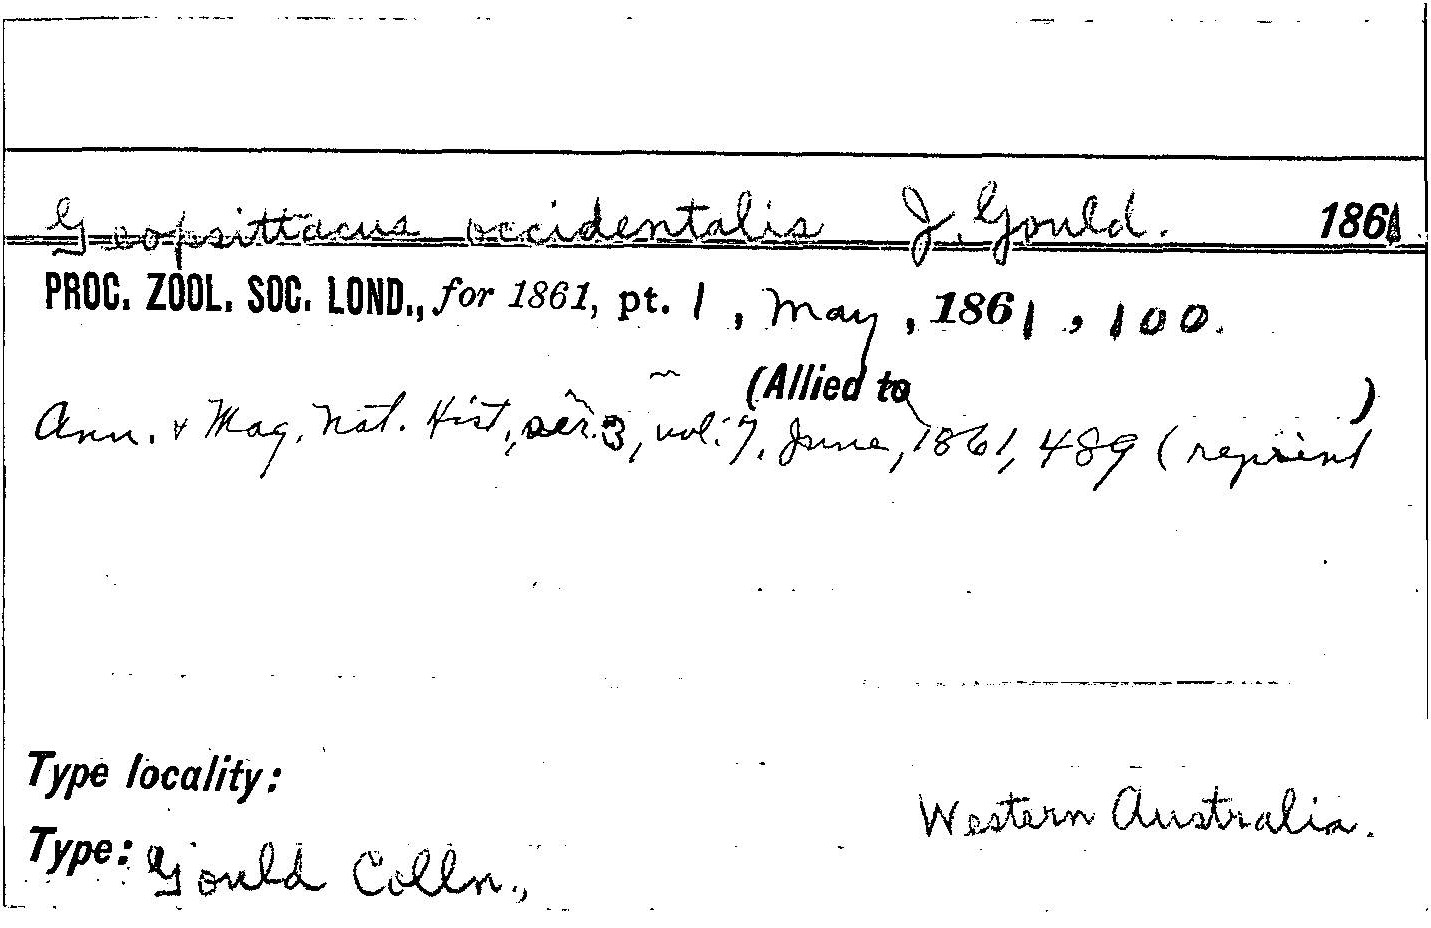 Geopsittacus occidentalis J. Gould. 1861
PROC. ZOOL. SOC. LOND., for 1861, pt. 1, May, 1861, 100.
(Allied to )
Ann. & Mag. Nat. Hist., ser. 3, vol. 7, June, 1861, 489 (reprint
Type locality:
Western Australia.
Type: Gould Colln.,